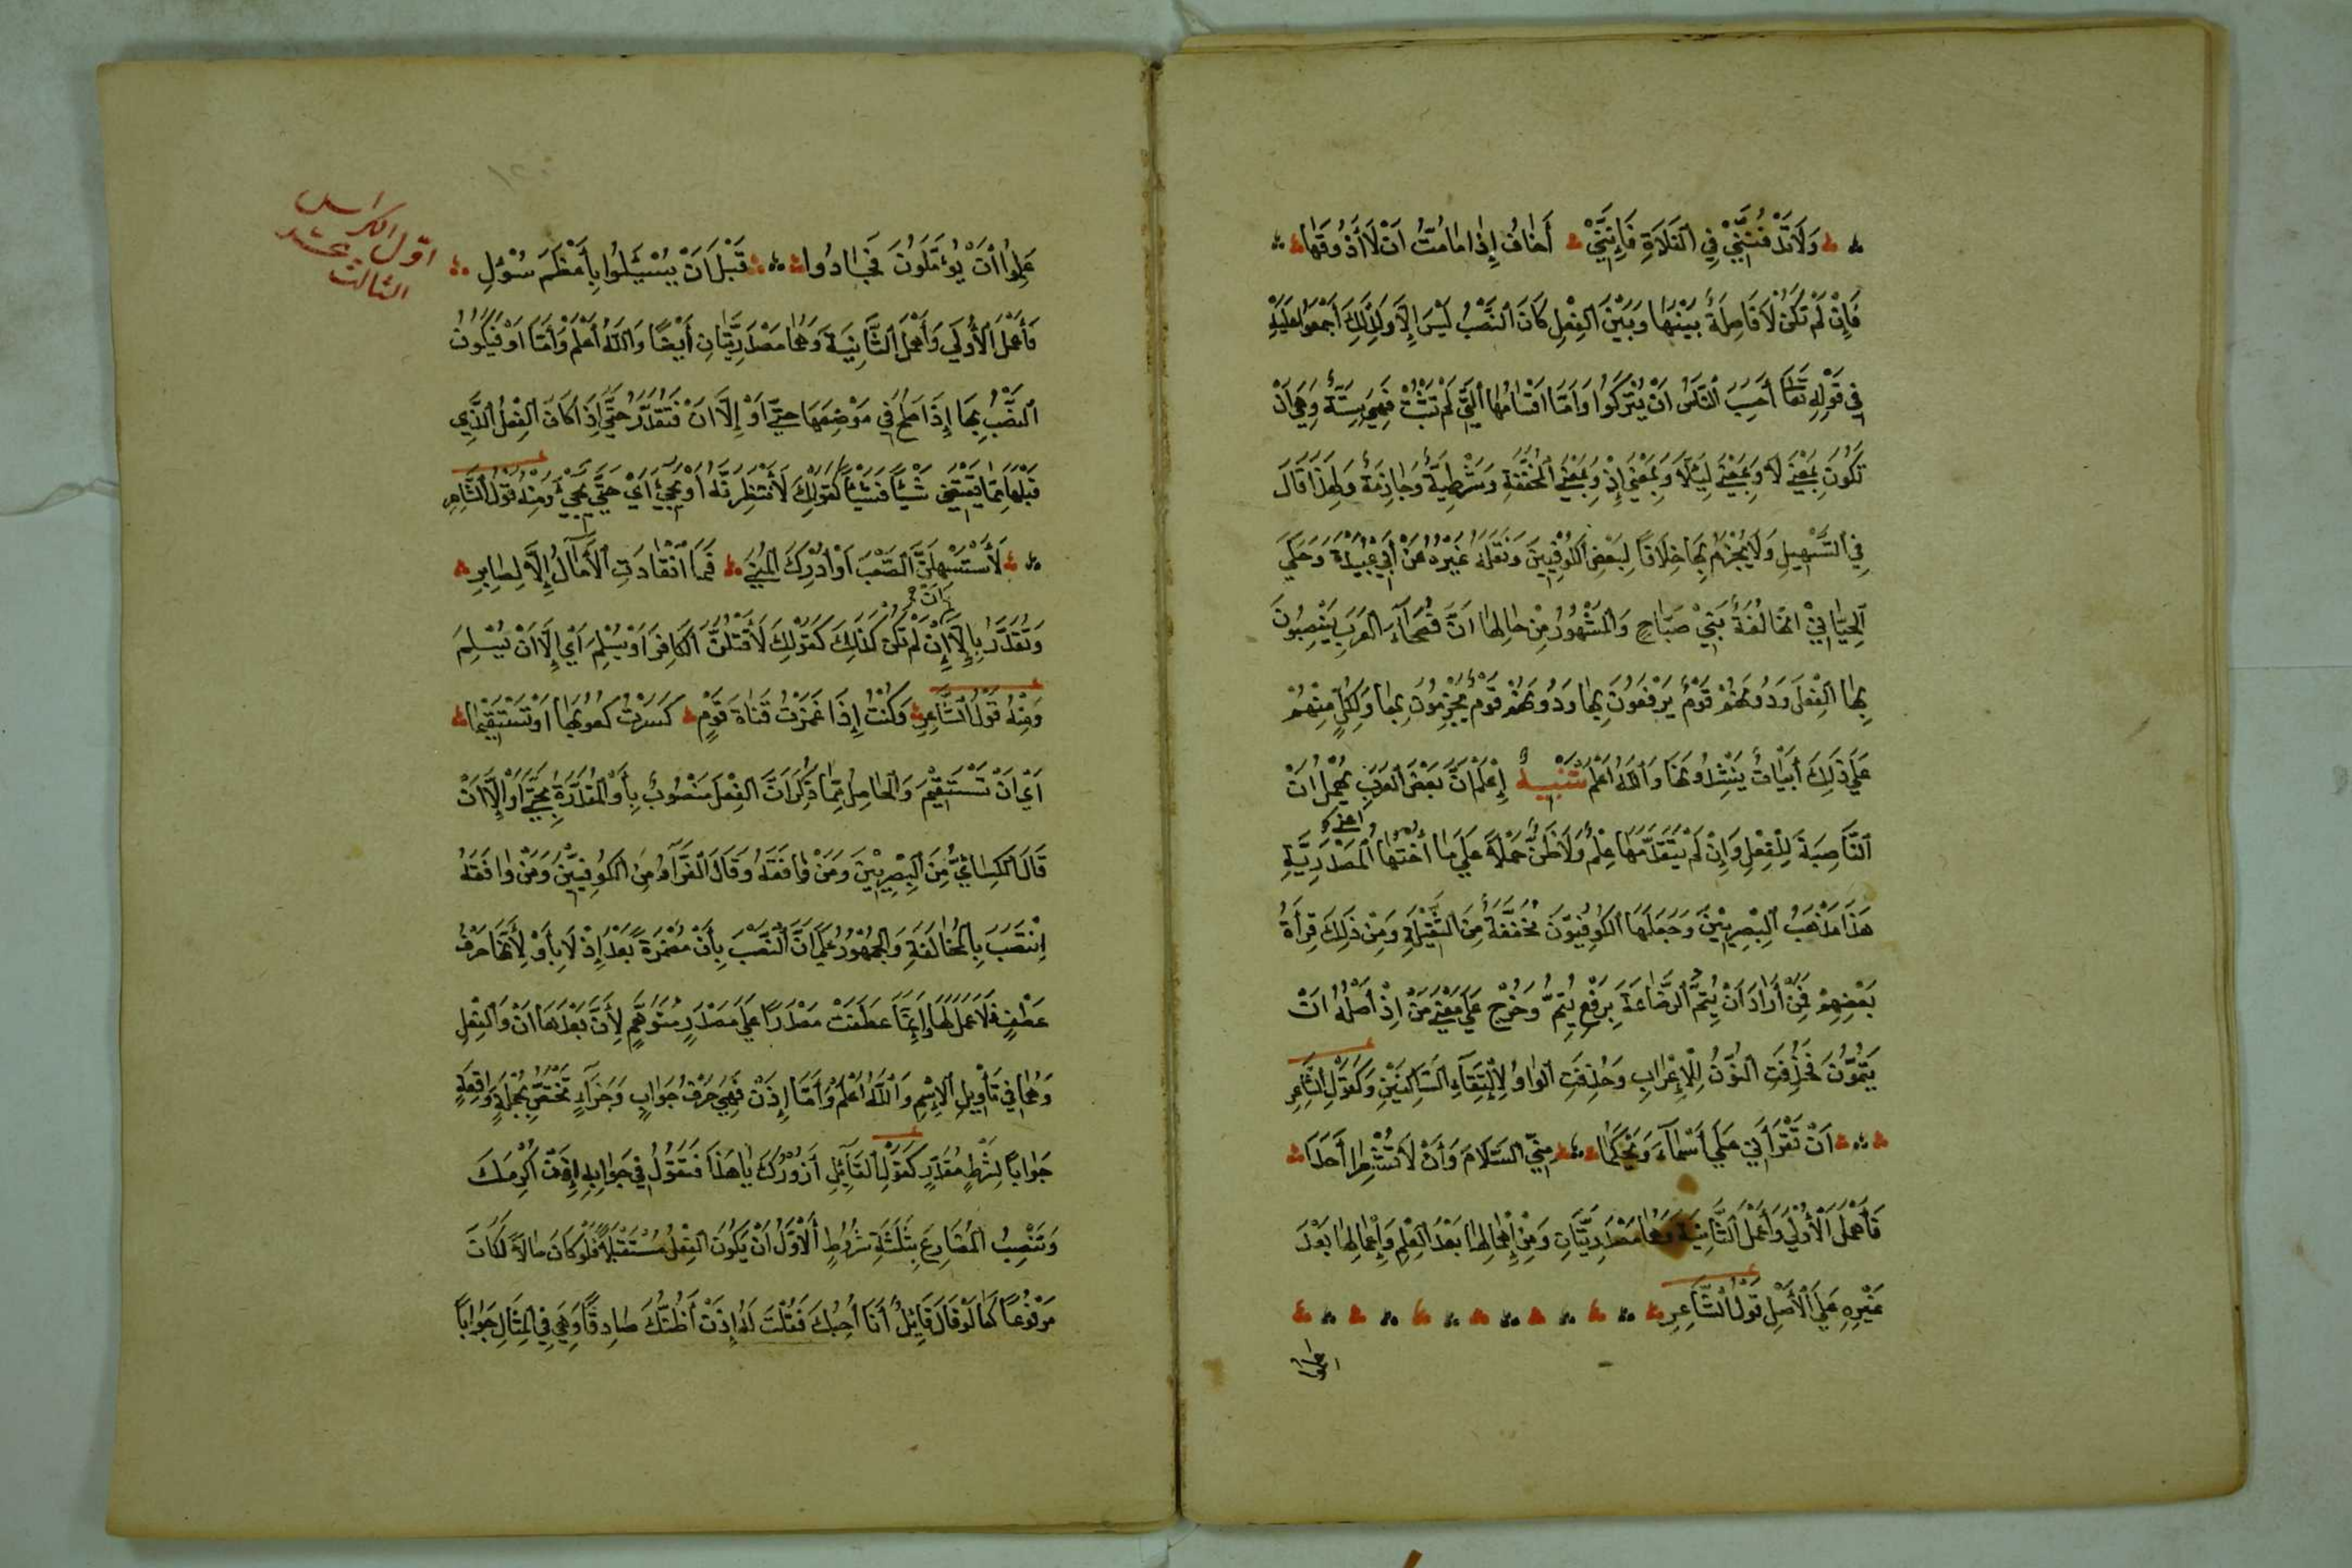 وَلَا تَدْفُنَنِّيْ فِي الْفَلَاةِ فَإِنَّنِيْ أَخَافُ إِذَا مَا مُتُّ اَنْ لَا أَذُوقَهَا
فَإِنْ لَمْ تَكُنْ لَا فَاصِلَةً بَيْنَهَا وَبَيْنَ الْفِعْلِ كَانَ النَّصْبُ لَيْسَ إِلَّا وَلِذَلِكَ أَجْمَعُوا عَلَيْهِ
فِي قَوْلِهِ تَعَالَى أَحَسِبَ النَّاسُ اَنْ يُتْرَكُوا وَاَمَّا اَقْسَامُهَا الَّتِي لَمْ تَثْبُتْ فَهِيَ سِتَّةٌ وَهِيَ اَنْ
تَكُونَ بِمَعْنَى لَا وَبِمَعْنَى لِئَلَّا وَبِمَعْنَى إِذْ وَبِمَعْنَى الْمُخَفَّفَةِ وَشَرْطِيَّةً وَجَازِمَةً وَلِهَذَا قَالَ
فِي التَّسْهِيلِ وَلَا يُجْزَمُ بِهَا خِلَافًا لِبَعْضِ الْكُوفِيِّينَ وَنَقَلَهُ غَيْرُهُ عَنْ أَبِي عُبَيْدَةَ وَحَكَى
اللِّحْيَانِيْ اَنَّهَا لُغَةُ بَنِيْ صَبَاحٍ وَالْمَشْهُورُ مِنْ حَالِهَا اَنَّ فُصَحَاءَ الْعَرَبِ يَنْصِبُونَ
بِهَا الْفِعْلَ وَدُونَهُمْ قَوْمٌ يَرْفَعُونَ بِهَا وَدُونَهُمْ قَوْمٌ يَجْزِمُونَ بِهَا وَلِكُلٍّ مِنْهُمْ
عَلَى ذَلِكَ أَبْيَاتٌ يَنْشِدُونَهَا وَاللّٰهُ اَعْلَمُ تَنْبِيهٌ إِعْلَمْ اَنَّ بَعْضَ الْعَرَبِ يُهْمِلُ اَنْ
النَّاصِبَةَ لِلْفِعْلِ وَاِنْ لَمْ يَتَقَدَّمْهَا عِلْمٌ وَلَا ظَنٌّ حَمْلًا عَلَى مَا أُخْتِهَا اَعْنِي الْمَصْدَرِيَّةِ
هَذَا مَذْهَبُ الْبَصْرِيِّيْنَ وَجَعَلَهَا الْكُوفِيُّونَ مُخَفَّفَةً مِنَ الثَّقِيْلَةِ وَمِنْ ذَلِكَ قِرَأَةُ
بَعْضِهِمْ لِمَنْ أَرَادَ اَنْ يُتِمَّ الرَّضَاعَةَ بِرَفْعِ يُتِمُّ وَخُرِّجَ عَلَى مَعْنَى مَنْ إِذْ أَصْلُهُ اَنْ
يُتِمُّونَ فَحُذِفَتِ النُّوْنُ لِلْإِعْرَابِ وَحُذِفَتِ الْوَاوُ لِالْتِقَاءِ السَّاكِنَيْنِ وَكَقَوْلِ الشَّاعِرِ
اَنْ تَقْرَأَنِ عَلَى أَسْمَاءَ وَيْحَكُمَا مِنِّي السَّلَامَ وَأَنْ لَا تُشْعِرَا أَحَدًا
فَأَهْمَلَ الْأُوْلَى وَأَعْمَلَ الثَّانِيَةَ وَهُمَا مَصْدَرِيَّتَانِ وَمِنْ إِهْمَالِهَا بَعْدَ الْعِلْمِ وَإِعْمَالِهَا بَعْدَ
غَيْرِهِ عَلَى الْأَصْلِ قَوْلُ الشَّاعِرِ
علموا
اوّل الكراس
الثالث عشر
عَلِمُوا أَنْ يُؤَمَّلُونَ فَجَادُوا قَبْلَ اَنْ يُسْئَلُوا بِأَعْظَمِ سُؤْلِ
فَأَهْمَلَ الْأُولَى وَأَعْمَلَ الثَّانِيَةَ وَهُمَا مَصْدَرِيَّتَانِ أَيْضًا وَاللّٰهُ أَعْلَمُ وَأَمَّا اَوْ فَيَكُونُ
النَّصْبُ بِهَا إِذَا صَلُحَ فِي مَوْضِعِهَا حَتَّى اَوْ إِلَّا اَنْ فَتُقَدَّرُ حَتَّى إِذَا كَانَ الْفِعْلُ الَّذِي
قَبْلَهَا مِمَّا يَنْقَضِي شَيْئًا فَشَيْئًا كَقَوْلِكَ لَأَنْتَظِرَنَّهُ اَوْ يَجِيْءَ اَيْ حَتَّى يَجِيْءَ وَمِنْهُ قَوْلُ الشَّاعِرِ
لَأَسْتَسْهِلَنَّ الصَّعْبَ اَوْ أُدْرِكَ الْمُنَى فَمَا انْقَادَتِ الْآمَالُ إِلَّا لِصَابِرِ
وَتُقَدَّرُ بِإِلَّا اَنْ إِنْ لَمْ تَكُنْ كَذَلِكَ كَقَوْلِكَ لَأَقْتُلَنَّ الْكَافِرَ اَوْ يُسْلِمَ اَيْ إِلَّا اَنْ يُسْلِمَ
وَمِنْهُ قَوْلُ الشَّاعِرِ وَكُنْتُ إِذَا غَمَزْتُ قَنَاةَ قَوْمٍ كَسَرْتُ كُعُوبَهَا اَوْ تَسْتَقِيْمَا
اَيْ اَنْ تَسْتَقِيْمَ وَالْحَاصِلُ مِمَّا ذُكِرَ اَنَّ الْفِعْلَ مَنْصُوبٌ بِأَوْ الْمُقَدَّرَةِ بِحَتَّى اَوْ إِلَّا اَنْ
قَالَ الْكِسَائِيُّ مِنَ الْبَصْرِيِّيْنَ وَمَنْ وَافَقَهُ وَقَالَ الْفَرَّاءُ مِنَ الْكُوفِيِّيْنَ وَمَنْ وَافَقَهُ
اِنْتَصَبَ بِالْمُخَالَفَةِ وَالْجُمْهُورُ عَلَى اَنَّ النَّصْبَ بِأَنْ مُضْمَرَةً بَعْدُ إِذْ لَا بِأَوْ لِأَنَّهَا حَرْفُ
عَطْفٍ فَلَا عَمَلَ لَهَا وَإِنَّمَا عَطَفَتْ مَصْدَرًا عَلَى مَصْدَرٍ مُتَوَهَّمٍ لِأَنَّ بَعْدَهَا اَنْ وَالْفِعْلِ
وَهُمَا فِي تَأْوِيلِ الْاِسْمِ وَاللّٰهُ أَعْلَمُ وَأَمَّا إِذَنْ فَهِيَ حَرْفُ جَوَابٍ وَجَزَاءٍ تَخْتَصُّ بِجُمْلَةٍ وَاقِعَةٍ
جَوَابًا لِشَرْطٍ مُقَدَّرٍ كَقَوْلِ الْقَائِلِ أَزُورُكَ يَا هَذَا فَتَقُولُ فِي جَوَابِهِ إِذَنْ اُكْرِمَكَ
وَتَنْصِبُ الْمُضَارِعَ بِثَلَثَةِ شُرُوطٍ اَلْأَوَّلُ اَنْ يَكُونَ الْفِعْلُ مُسْتَقْبَلًا فَلَوْ كَانَ حَالًا لَكَانَ
مَرْفُوعًا كَمَا لَوْ قَالَ قَائِلٌ أَنَا أُحِبُّكَ فَقُلْتَ لَهُ إِذَنْ أَظُنُّكَ صَادِقًا وَهِيَ فِي الْمِثَالِ جَوَابًا